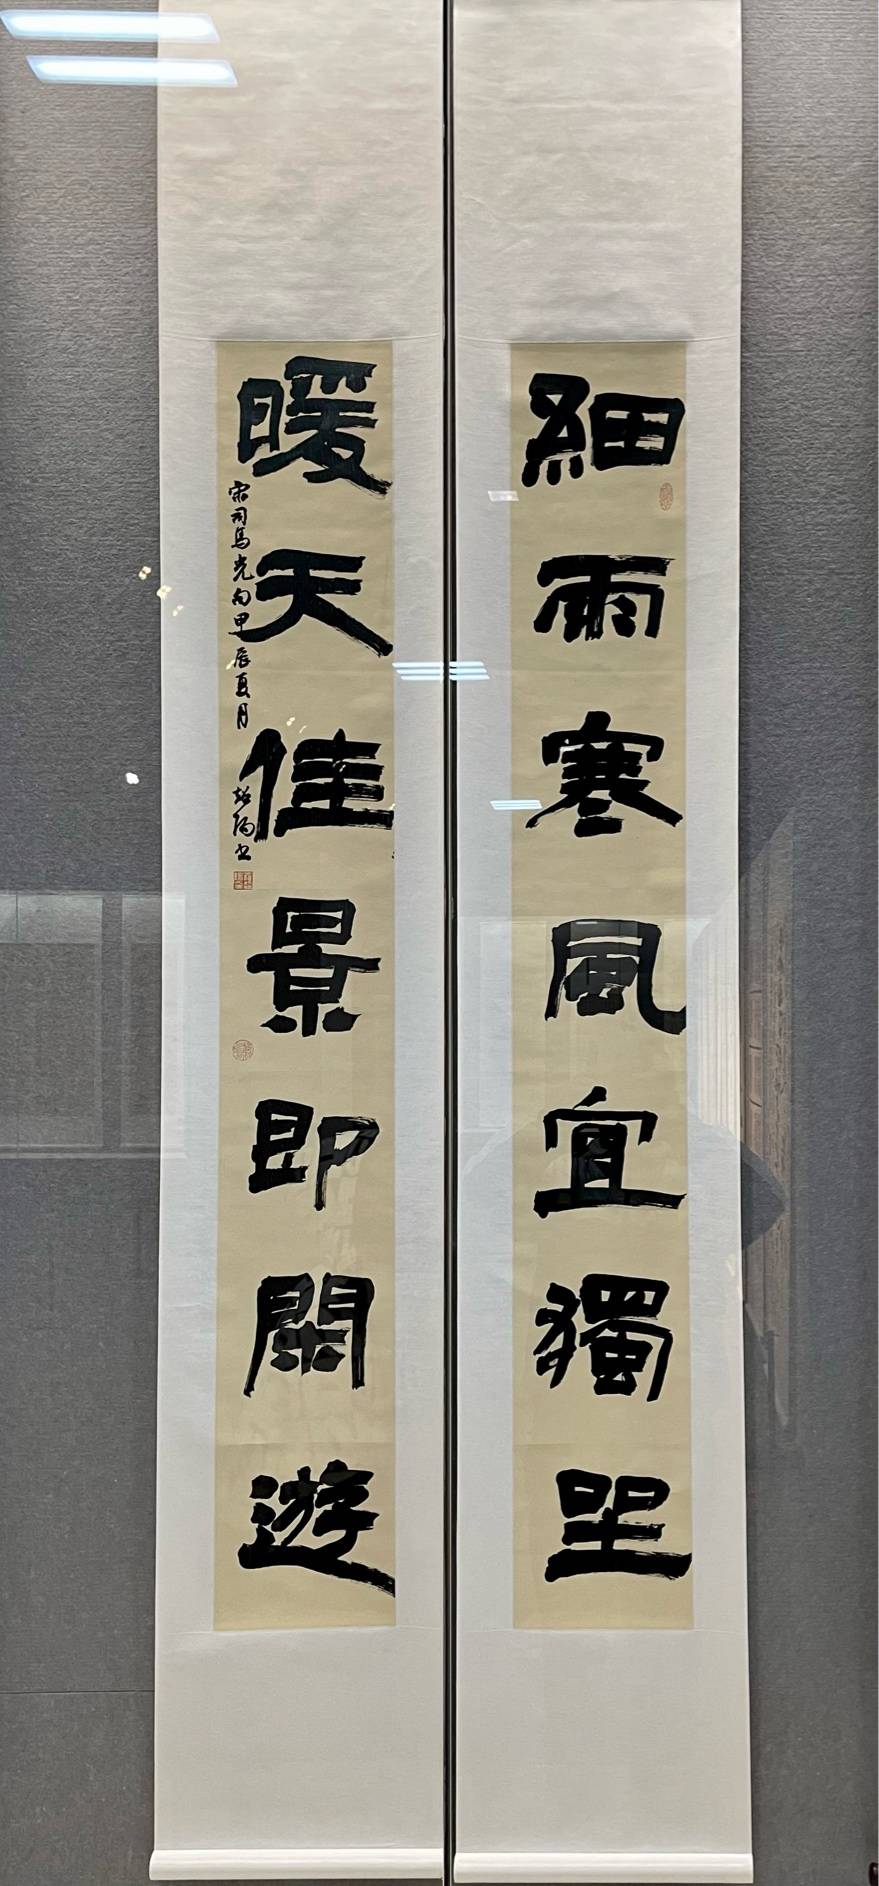 細雨寒風宜獨坐
暖天佳景即閑遊
宋司馬光句甲辰夏月
書